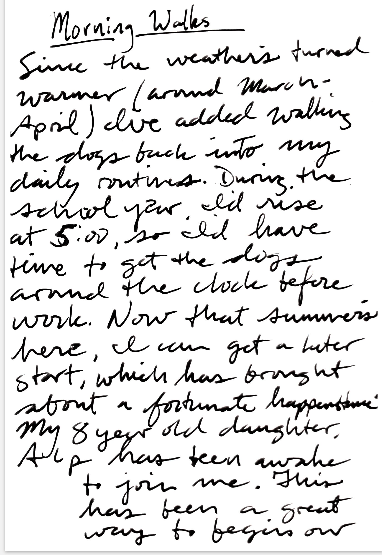 Morning Walks
Since the weather's turned
warmer (around March-
April) I've added walking
the dogs back into my
daily routines. During the
school year, I'd rise
at 5:00, so I'd have
time to get the dogs
around the clock before
work. Now that summer's
here, I can get a later
start, which has brought
about a fortunate
My 8 year old daughter,
has been awake
to join me. This
has been a great
way to begin our